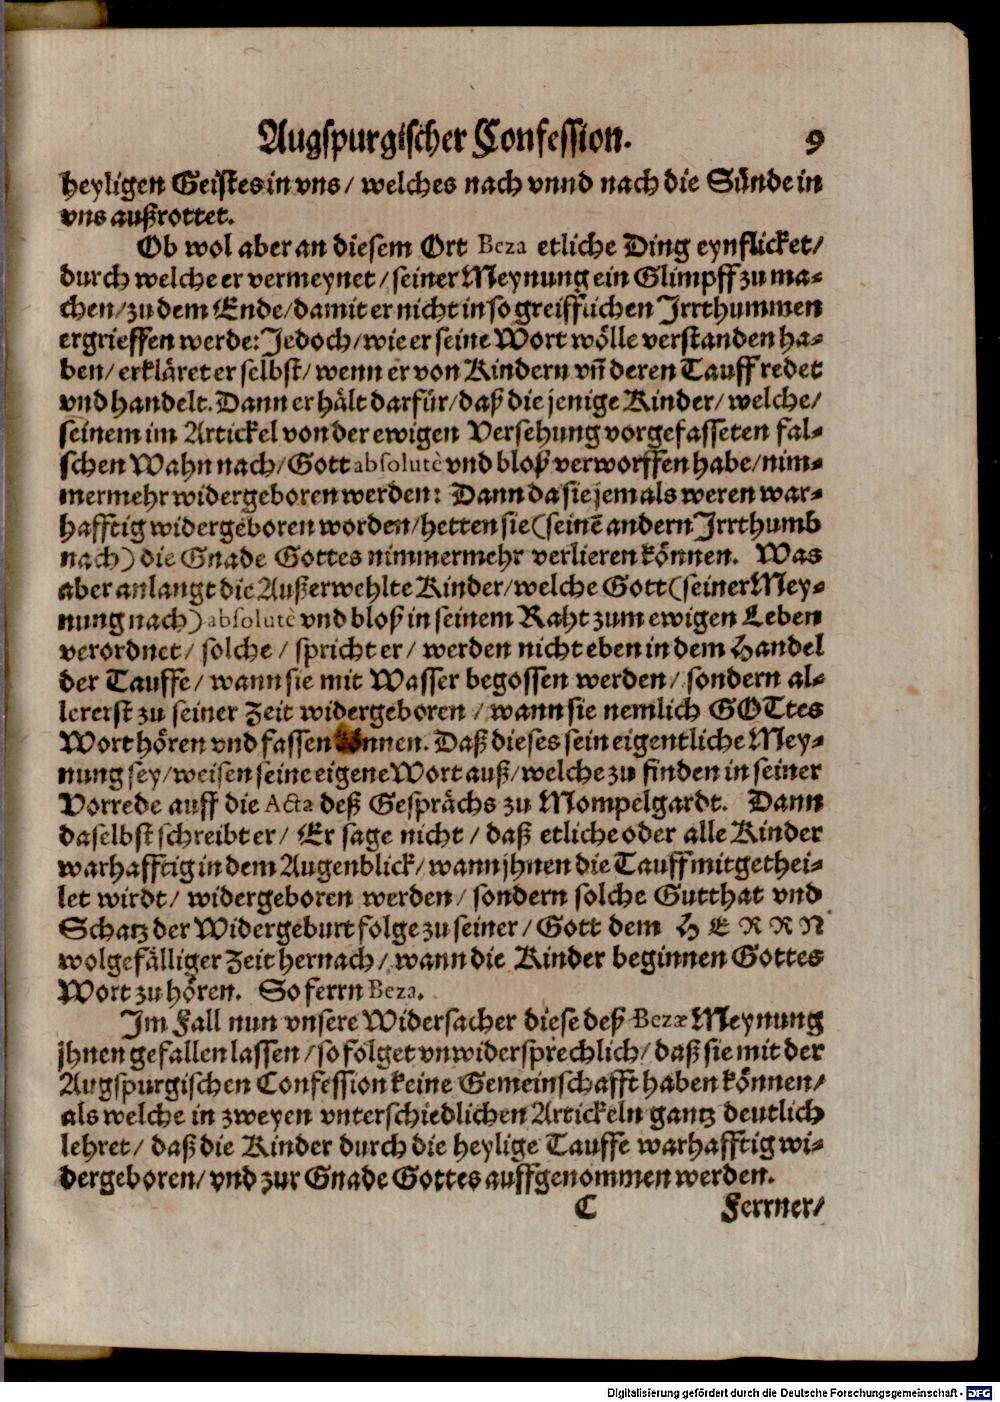 Augspurgischer Confession. 9
heyligen Geistes in vns / welches nach vnnd nach die Sünde in
vns außrottet.
Ob wol aber an diesem Ort Beza etliche Ding eynflicket /
durch welche er vermeynet / seiner Meynung ein Glimpff zu ma-
chen / zu dem Ende / damit er nicht in so greifflichen Irrthummen
ergrieffen werde: Jedoch / wie er seine Wort wölle verstanden ha-
ben / erkläret er selbst / wenn er von Kindern vñ deren Tauff redet
vnd handelt. Dann er hält darfür / daß die jenige Kinder / welche /
seinem im Artickel von der ewigen Versehung vorgefasseten fal-
schen Wahn nach / Gott absolutè vnd bloß verworffen habe / nim-
mermehr widergeboren werden: Dann da sie jemals weren war-
hafftig widergeboren worden / hetten sie (seinē andern Irrthumb
nach) die Gnade Gottes nimmermehr verlieren können. Was
aber anlangt die Außerwehlte Kinder / welche Gott (seiner Mey-
nung nach) absolutè vnd bloß in seinem Raht zum ewigen Leben
verordnet / solche / spricht er / werden nicht eben in dem Handel
der Tauffe / wann sie mit Wasser begossen werden / sondern al-
lererst zu seiner Zeit widergeboren / wann sie nemlich GOTtes
Wort hören vnd fassen können. Daß dieses sein eigentliche Mey-
nung sey / weisen seine eigene Wort auß / welche zu finden in seiner
Vorrede auff die Acta deß Gesprächs zu Mompelgardt. Dann
daselbst schreibt er / Er sage nicht / daß etliche oder alle Kinder
warhafftig in dem Augenblick / wann jhnen die Tauff mitgethei-
let wirdt / widergeboren werden / sondern solche Gutthat vnd
Schatz der Widergeburt folge zu seiner / Gott dem HERRN
wolgefälliger Zeit hernach / wann die Kinder beginnen Gottes
Wort zu hören. So ferrn Beza.
Im Fall nun vnsere Widersacher diese deß Bezæ Meynung
jhnen gefallen lassen / so folget vnwidersprechlich / daß sie mit der
Augspurgischen Confession keine Gemeinschafft haben können /
als welche in zweyen vnterschiedlichen Artickeln gantz deutlich
lehret / daß die Kinder durch die heylige Tauffe warhafftig wi-
dergeboren / vnd zur Gnade Gottes auffgenommen werden.
C Ferrner /
Digitalisierung gefördert durch die Deutsche Forschungsgemeinschaft - DFG